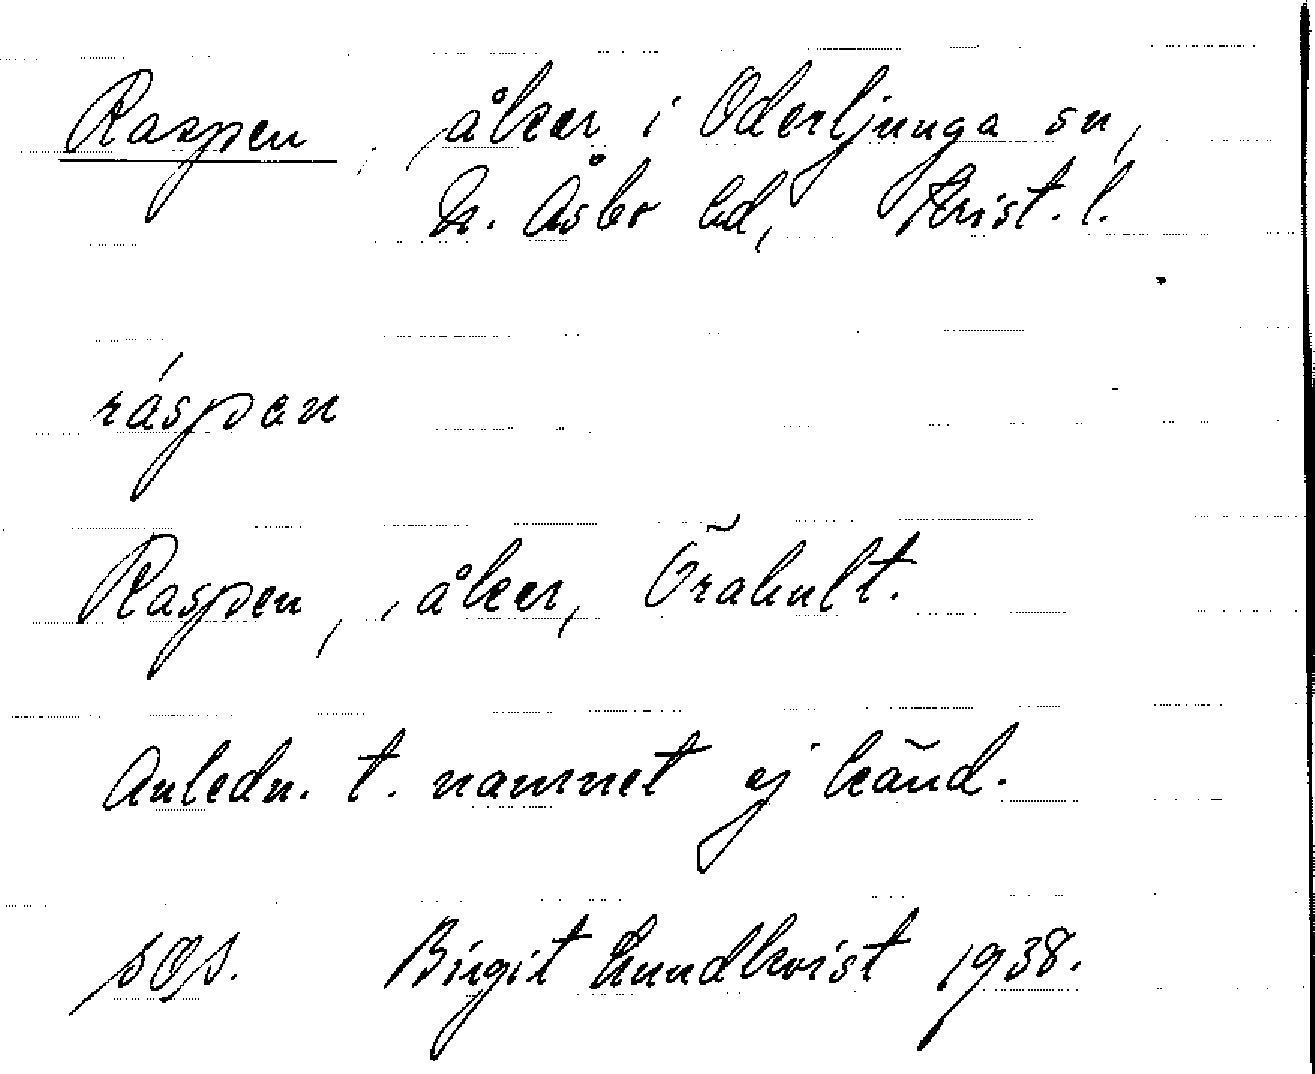 Raspen, åker i Oderljunga sn,
N. Åsbo hd, Krist. l.
ráspan
Raspen, åker, Örahult.
Anledn. t. namnet ej känd.
Birgit Lundkvist 1938.